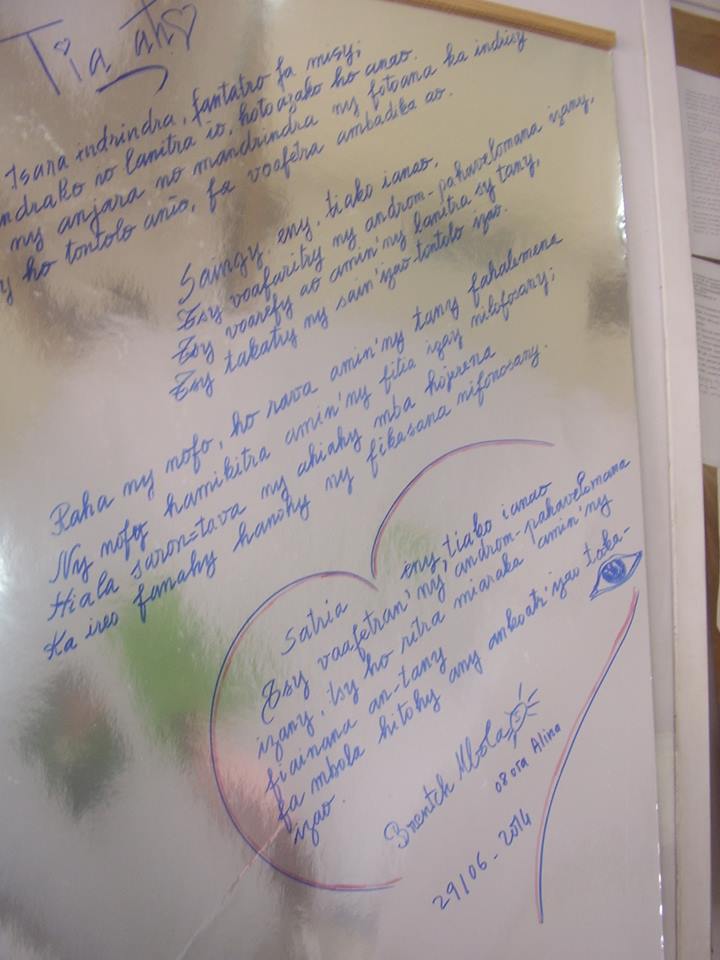 Tia aho
Tsara indrindra, fantatro fa misy;
ndrako no lanitra io, hotoazako ho anao.
ny anjara no mandrindra ny fotoana ka indrisy
y ho tontolo anio, fa voafetra ambadika ao.
Saingy eny, tiako ianao,
Tsy voafaritry ny androm-pahavelomana izany,
Tsy voarefy ao amin'ny lanitra sy tany,
Tsy takatry ny sain'izao tontolo izao.
Raha ny nofo, ho rava amin'ny tany fahalemena
Ny nofy hamikitra amin'ny fitia izay nilofosany;
Hiala saron=tava ny ahiahy mba hojerena
Ka ireo fanahy hanohy ny fikasana nifonosany.
Satria eny, tiako ianao
Tsy voafetran'ny androm-pahavelomana
izany, tsy ho ritra miaraka amin'ny
fiainana an-tany
fa mbola hitohy any ankoatr'izao toko-
izao.
Brentch Mbola
08 ora Alina
29/06-2014